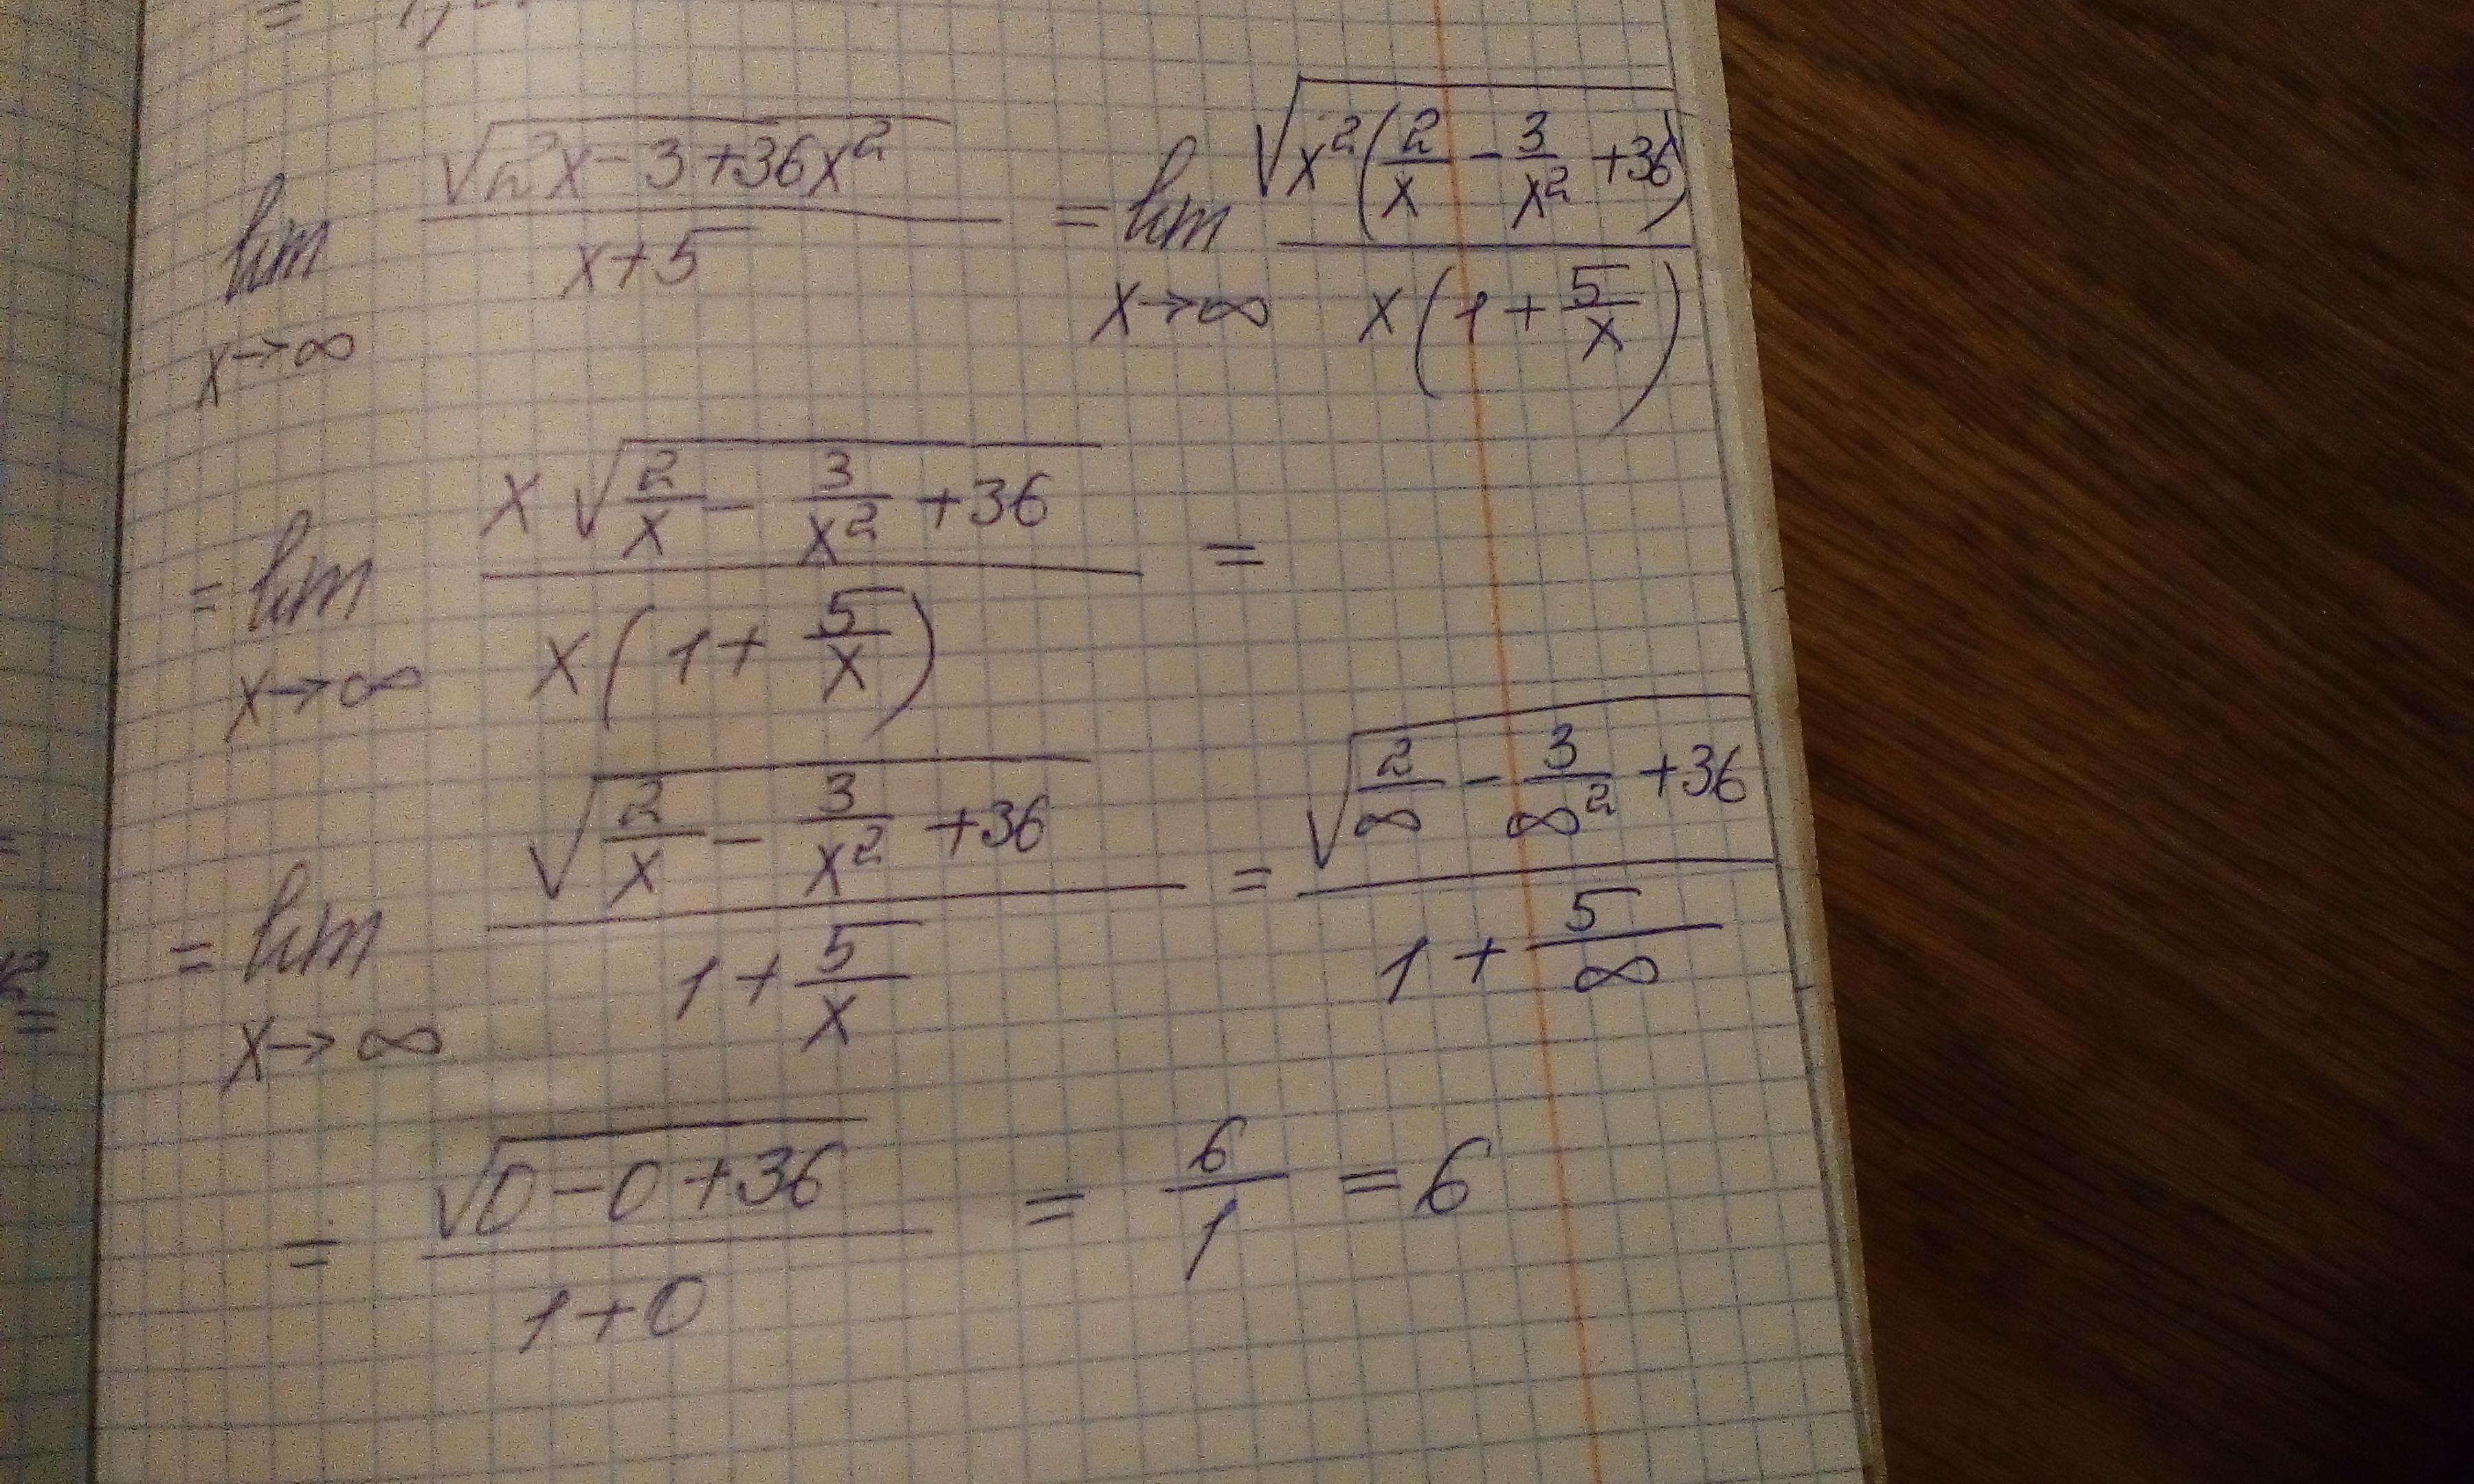 lim x→∞ √(2x-3+36x²) / (x+5) = lim x→∞ √(x²(2/x - 3/x² +36)) / (x(1+5/x))
= lim x→∞ x√(2/x - 3/x² +36) / (x(1+5/x)) =
= lim x→∞ √(2/x - 3/x² +36) / (1+5/x) = √(2/∞ - 3/∞² +36) / (1+5/∞)
= √(0-0+36) / (1+0) = 6/1 = 6